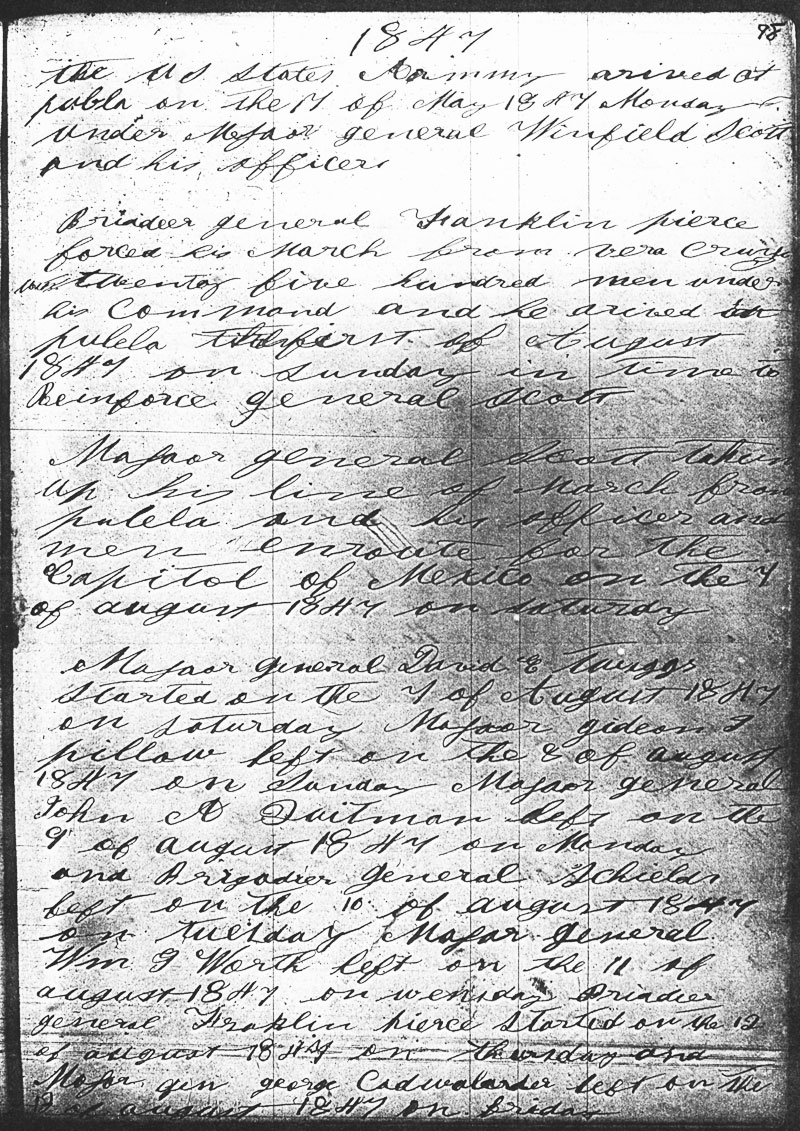 98
1847
the US States Arimmy arived at
publa on the 17 of May 1847 Monday
under Mafaor general Winfield Scott
and his officers
Briadeer general Franklin pierce
forced his March from vera Cruize
with twenty five hundred men under
his Command and he arived in
pulela first of August
1847 on Sunday in time to
Reinforce general Scott
Mafaor general Scott taken
up his line of March from
pulela and his officer and
men enroute for the
Capitol of Mexico on the 7
of august 1847 on saturdy
Mafaor general David E Twiggs
Started on the 7 of August 1847
on saturday Mafaor gideon J
pillow left on the 8 of august
1847 on Sunday Mafaor general
John A Quitman left on the
9 of august 1847 on Monday
and Brigadier general Schields
left on the 10 of august 1847
on tuesday Mafar general
Wm J Worth left on the 11 of
august 1847 on wensday Briadier
general Fraklin pierce Started on the 12
of august 1847 on thursday and
Mafor gen george Cadwalarder left on the
13 of august 1847 on friday